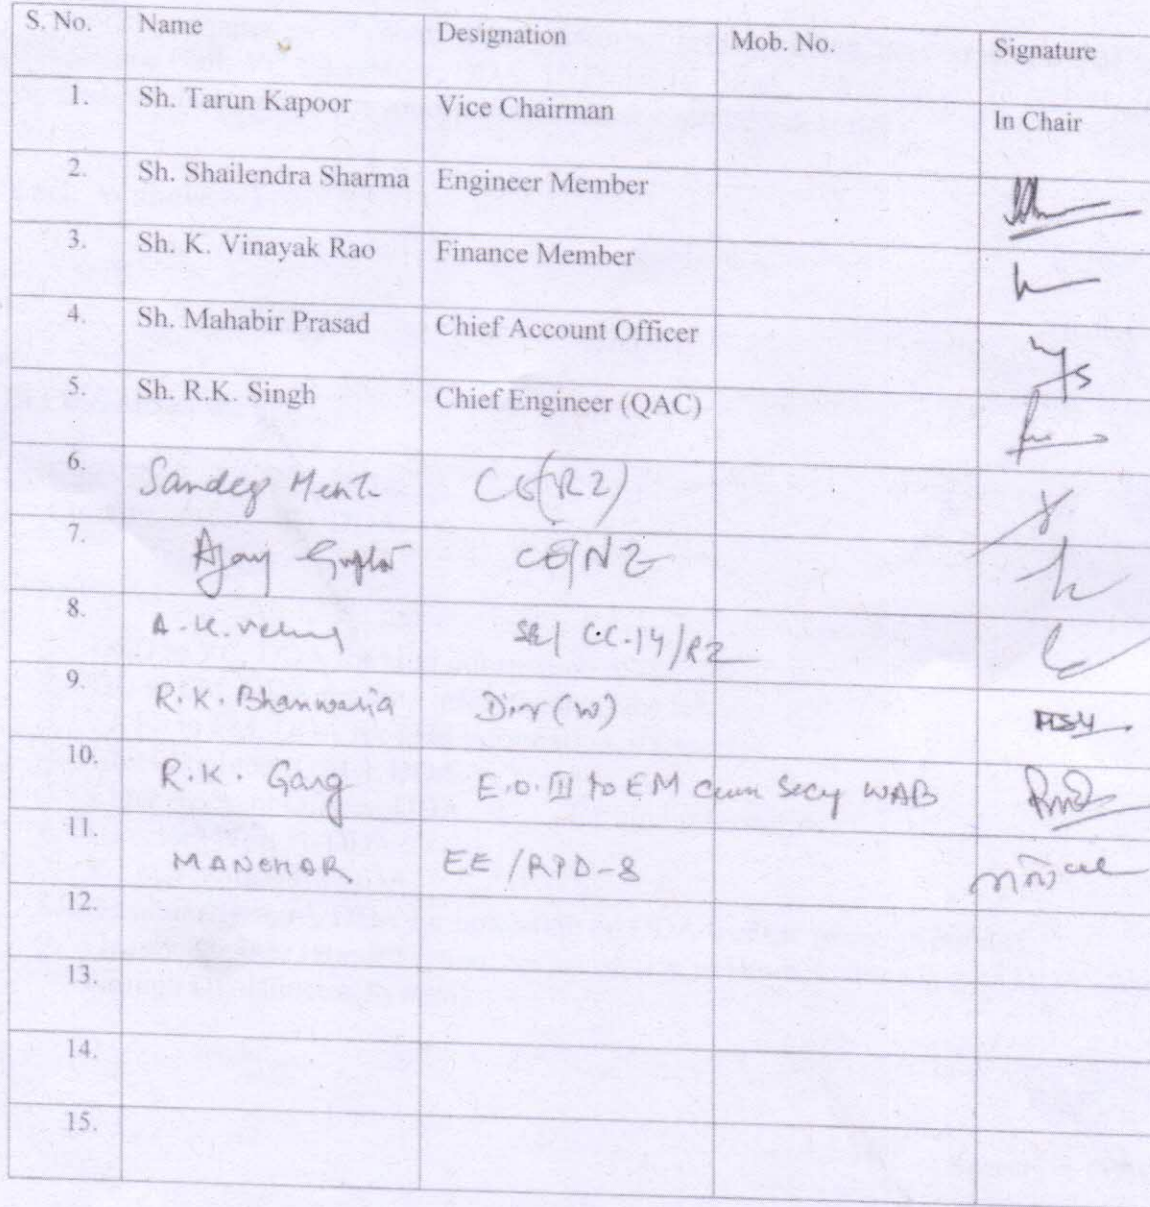 S. No. Name Designation Mob. No. Signature
1. Sh. Tarun Kapoor Vice Chairman In Chair
2. Sh. Shailendra Sharma Engineer Member
3. Sh. K. Vinayak Rao Finance Member
4. Sh. Mahabir Prasad Chief Account Officer
5. Sh. R.K. Singh Chief Engineer (QAC)
6. Sandeep CE(RZ)
7. Ajay Gupta CE/NZ
8. A.K. SE/ CC-14/RZ
9. R.K. Bhanwaria Dir(W)
10. R.K. Garg E.O. III to EM cum Secy WAB
11. MANOHAR EE/RPD-8
12.
13.
14.
15.